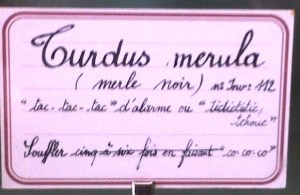 Turdus merula
(merle noir) n° Inv: 112
"tac-tac-tac" d'alarme ou "tictictic,
tchouc"
Souffler cinq à six fois en faisant "co-co-co"